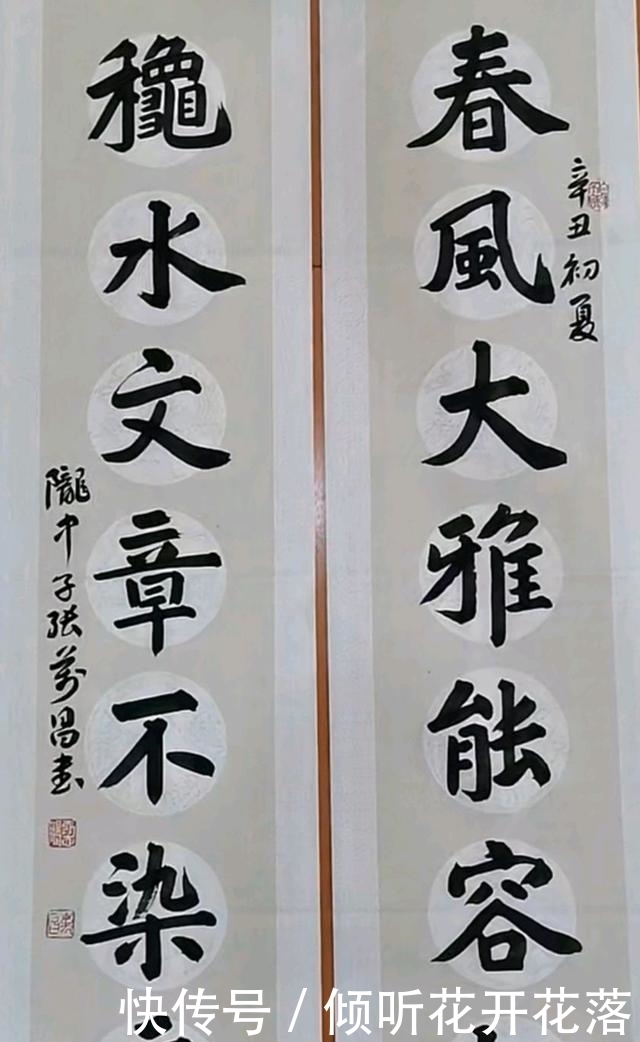 春風大雅能容
辛丑初夏
穐水文章不染
隴中子張萬昌書
快传号/倾听花开花落